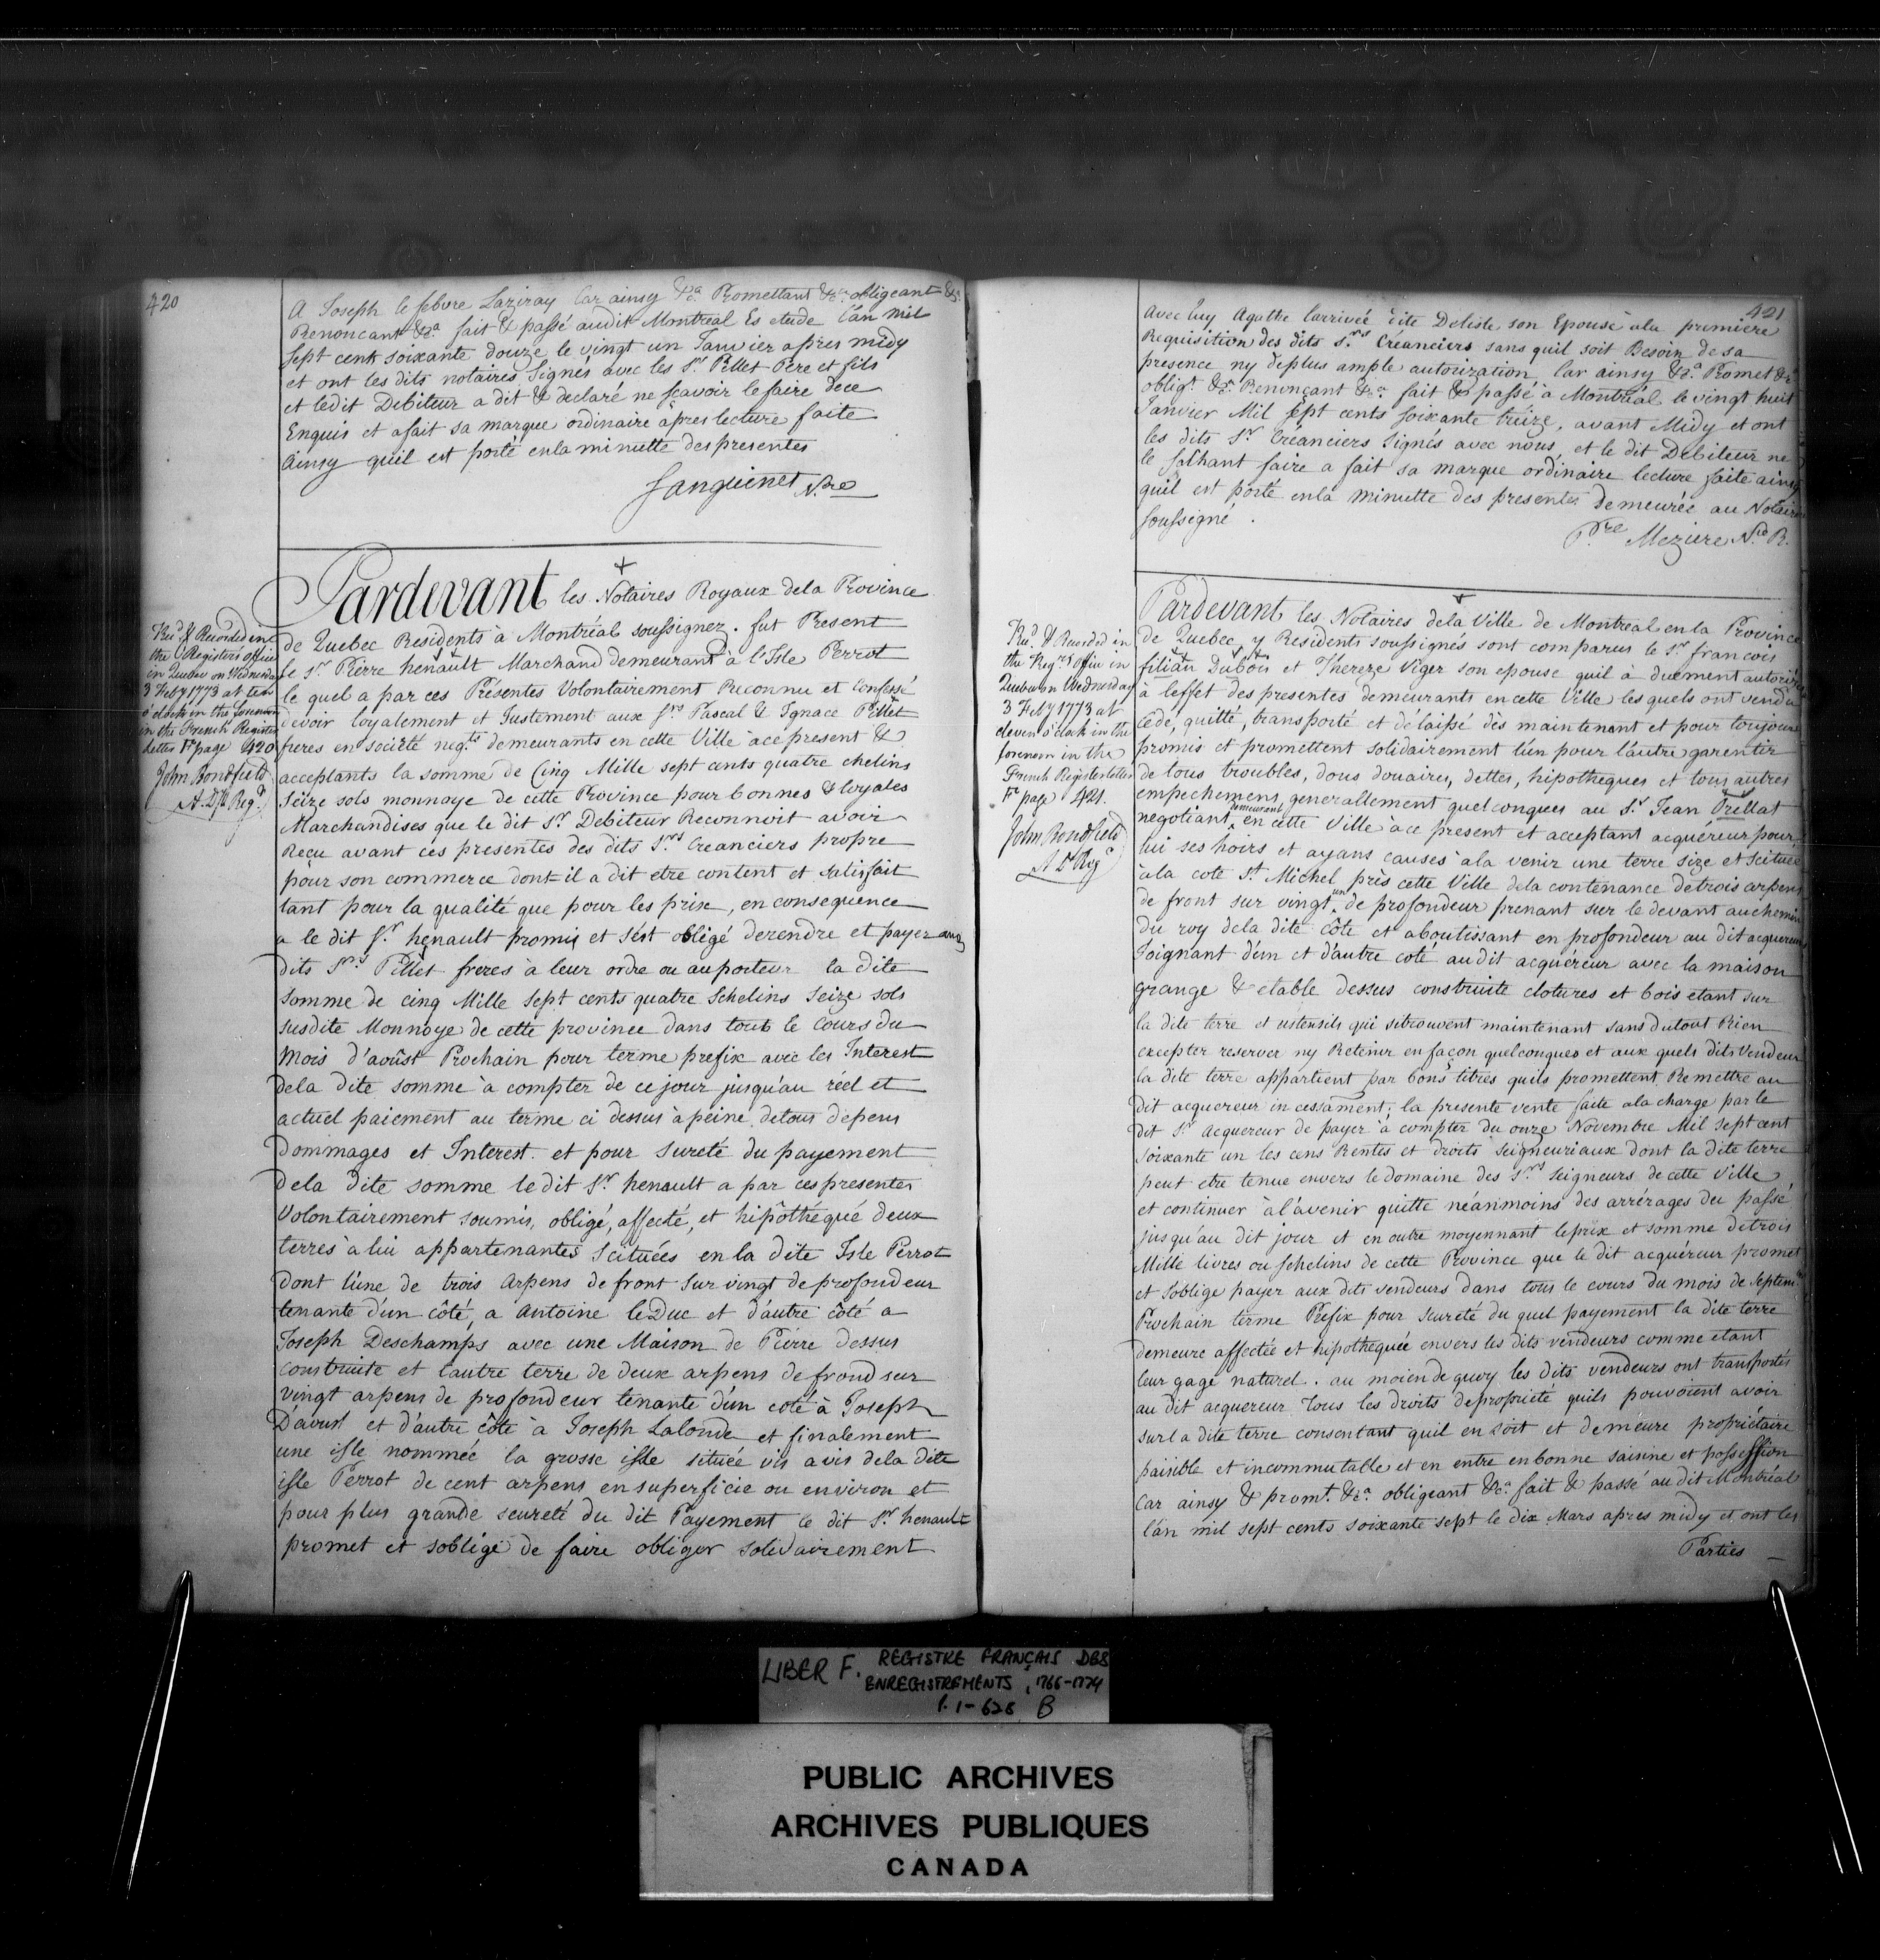 420
A Joseph le febvre Laziray Car ainsy &ca Promettant &ca obligeant &ca
Renoncant &ca fait & passé audit Montreal Es etude L'an mil
sept cent soixante douze le vingt un Janvier apres midy
et ont les dits notaires Signés avec les Srs Pillet Pere et fils
et ledit Debiteur a dit & declaré ne scavoir le faire dece
Enquis et a fait sa marque ordinaire àpres lecture faite
Ainsy quil est porté enla minutte des presentes
Sanguinet Nre
Recd & Recorded in
the Registers office
in Quebec on Wednesday
3 Feby 1773 at ten
o'clock in the forenoon
in the French Register
Letter Fr page 420
John Bondfield
A. Dy Regr
Pardevant les Notaires Royaux dela Province
de Quebec Residents à Montréal soussignez. fut Present
le Sr Pierre henault Marchand demeurant à l'Isle Perrot
le quel a par ces Présentes Volontairement Reconnu et Confessé
devoir loyalement et Justement aux Srs Pascal & Ignace Pillet
freres en société negts demeurants en cette Ville àce present &
acceptants la somme de Cinq Mille sept cents quatre chelins
Seize sols monnoye de cette Province pour bonnes & loyales
Marchandises que le dit Sr Debiteur Reconnoit avoir
Reçu avant ces presentes des dits Srs Creanciers propre
pour son commerce dont il a dit etre content et satisfait
tant pour la qualité que pour les prix, en consequence
a le dit Sr henault promis et s'est obligé derendre et payer aux
dits Srs Pillet freres à leur ordre ou au porteur la dite
Somme de cinq Mille Sept cents quatre Schelins Seize sols
susdite Monnoye de cette province dans tout le Cours du
Mois d'avoûst Prochain pour terme prefix avec les Interest
dela dite somme à compter de ce jour jusqu'au réel et
actuel paiement au terme ci dessus àpeine detous depens
Dommages et Interest. et pour sureté du payement
dela dite somme le dit Sr henault a par ces presentes
Volontairement soumis, obligé, affecté, et hipôthéqué deux
terres à lui appartenantes Scituées en la dite Isle Perrot
dont l'une de trois Arpens de front sur vingt de profondeur
tenante d'un côté, a Antoine léDuc et d'autre côté a
Joseph Deschamps avec une Maison de Pierre dessus
construite et l'autre terre de deux arpens de frond sur
vingt arpens de profondeur tenante d'un coté à Joseph
Davust et d'autre côté à Joseph Lalonde et finalement
une isle nommée la grosse isle située vis a vis dela dite
isle Perrot de cent arpens en superficie ou environ et
pour plus grande seureté du dit Payement le dit Sr henault
promet et soblige de faire obliger solidairement
421
Avec luy Agathe Larrivée dite Delisle son Epouse àla premiere
Requisition des dits Srs Créanciers sans quil soit Besoin de sa
presence ny deplus ample autorization Car ainsy &ca Promet &ca
obligt &ca Renonçant &ca fait & passé à Montréal le vingt huit
Janvier Mil sept cents soixante treize, avant Midy et ont
les dits Srs Créanciers signés avec nous, et le dit Debiteur ne
le sachant faire a fait sa marque ordinaire lecture faite ainsy
quil est porté enla minutte des presentes demeurée au Notaire
soussigné.
Pre Mezière Nre R.
Recd & Recorded in
the Regrs Office in
Quebec on Wednesday
3 Feby 1773 at
eleven o'clock in the
forenoon in the
French Register letter
Fr page 421.
John Bondfield
A Dy Regr
Pardevant les Notaires dela Ville de Montreal en la Province
de Quebec y Residents soussignés sont comparus le Sr francois
filiau Dubois et Thereze Viger son epouse quil à duement autorisée
à leffet des presentes demeurants en cette Ville les quels ont vendu
cédé, quitté, transporté et délaissé dès maintenant et pour toujours
promis et promettent solidairement l'un pour l'autre garentir
de tous troubles, dons douaires, dettes, hipotheques et tous autres
empechemens generallement quelconques au Sr Jean Prellat
negotiant demeurant en cette Ville àce present et acceptant acquéreur pour
lui ses hoirs et ayans causes àla venir une terre size et scituée
àla cote St Michel près cette Ville dela contenance de trois arpens
de front sur vingt un de profondeur prenant sur le devant au chemin
du roy dela dite côte et aboutissant en profondeur au dit acquereur
Joignant d'un et d'autre coté audit acquéreur avec la maison
grange & etable dessus construite clotures et bois etant sur
la dite terre et ustensils qui sétrouvent maintenant sans du tout Rien
excepter reserver ny Retenir en façon quelconques et aux quels dits Vendeurs
la dite terre appartient par bons titres quils promettent Remettre au
dit acquereur incessament; la presente vente faite àla charge par le
dit Sr Acquereur de payer à compter du onze Novembre Mil sept cent
soixante un les cens Rentes et droits seigneuriaux dont la dite terre
peut etre tenue envers le domaine des Srs Seigneurs de cette Ville
et continuer à l'avenir quitte néanmoins des arrérages du passé
jusqu'au dit jour et en outre moyennant le prix et somme de trois
Mille livres ou schelins de cette Province que le dit acquéreur promet
et soblige payer aux dits vendeurs dans tous le cours du mois de Septembre
Prochain terme Préfix pour seureté du quel payement la dite terre
demeure affectée et hipothequée envers les dits vendeurs comme etant
leur gage naturel. au moien de quoy les dits vendeurs ont transportés
au dit acquereur Tous les droits de propriete quils pouvoient avoir
sur la dite terre consentant quil en soit et demeure propriétaire
paisible et incommutable et en entre en bonne saisine et possession
Car ainsy & promt. &ca obligeant &ca fait & passé audit Montréal
l'an mil sept cents soixante sept le dix Mars apres midy et ont les
Parties
LIBER F. REGISTRE FRANÇAIS DES
ENREGISTREMENTS, 1766-1774
P. 1-628 B
PUBLIC ARCHIVES
ARCHIVES PUBLIQUES
CANADA